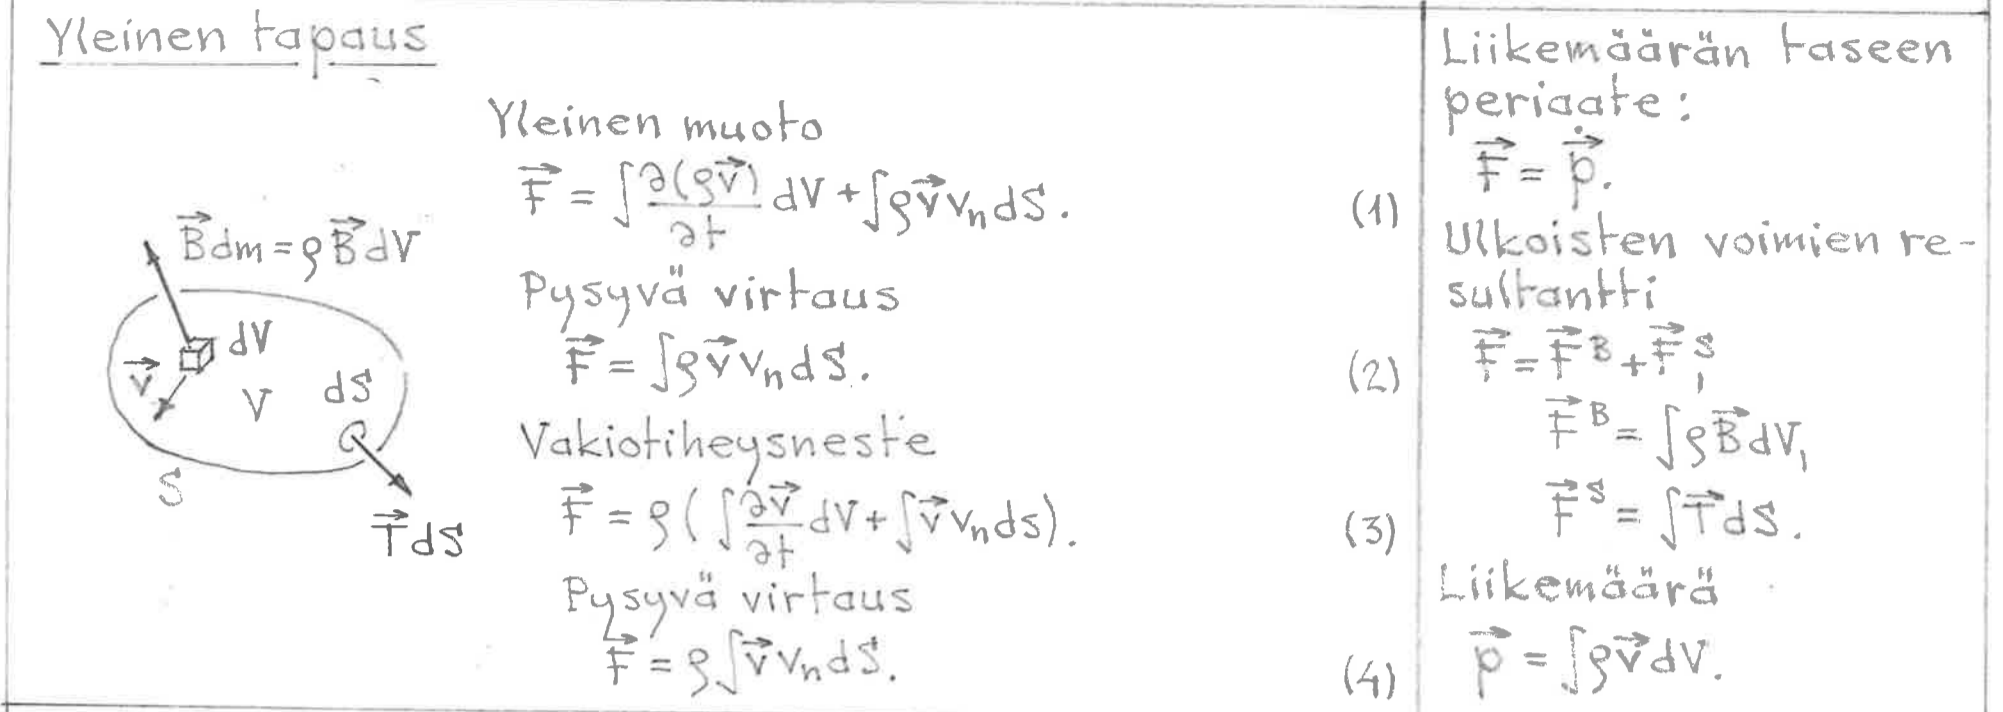 Yleinen tapaus
Yleinen muoto
F⃗ = ∫ ∂(ρv⃗)/∂t dV + ∫ρv⃗vₙdS. (1)
Pysyvä virtaus
F⃗ = ∫ρv⃗vₙdS. (2)
Vakiotiheysneste
F⃗ = ρ(∫ ∂v⃗/∂t dV + ∫v⃗vₙds). (3)
Pysyvä virtaus
F⃗ = ρ∫v⃗vₙdS. (4)
B⃗dm = ρB⃗dV
dV
v⃗
V
dS
S
T⃗dS
Liikemäärän taseen
periaate:
F⃗ = p⃗̇.
Ulkoisten voimien re-
sultantti
F⃗ = F⃗ᴮ + F⃗ˢ,
F⃗ᴮ = ∫ρB⃗dV,
F⃗ˢ = ∫T⃗dS.
Liikemäärä
p⃗ = ∫ρv⃗dV.